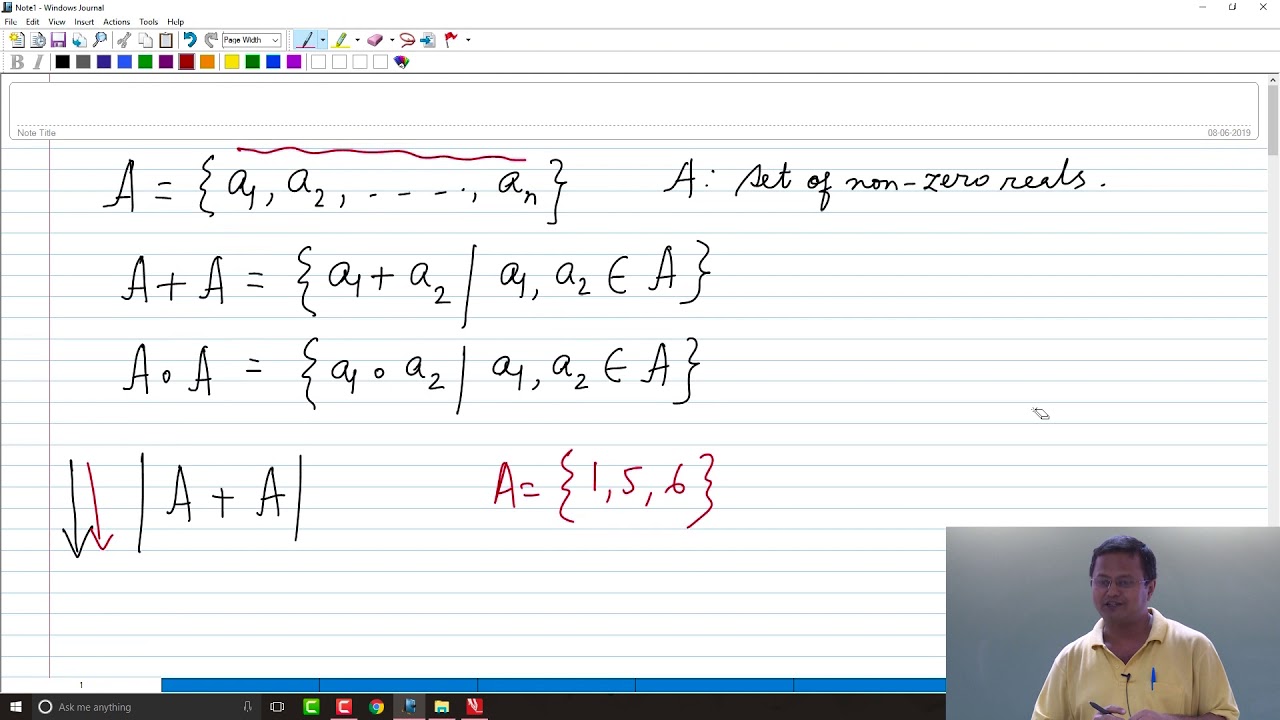 Note1 - Windows Journal
File Edit View Insert Actions Tools Help
Page Width
B I
Note Title
08-06-2019
A = {a₁, a₂, . - - - ., aₙ} A : set of non-zero reals.
A + A = {a₁ + a₂ | a₁, a₂ ∈ A}
A ∘ A = {a₁ ∘ a₂ | a₁, a₂ ∈ A}
|A + A| A = {1, 5, 6}
1
Ask me anything